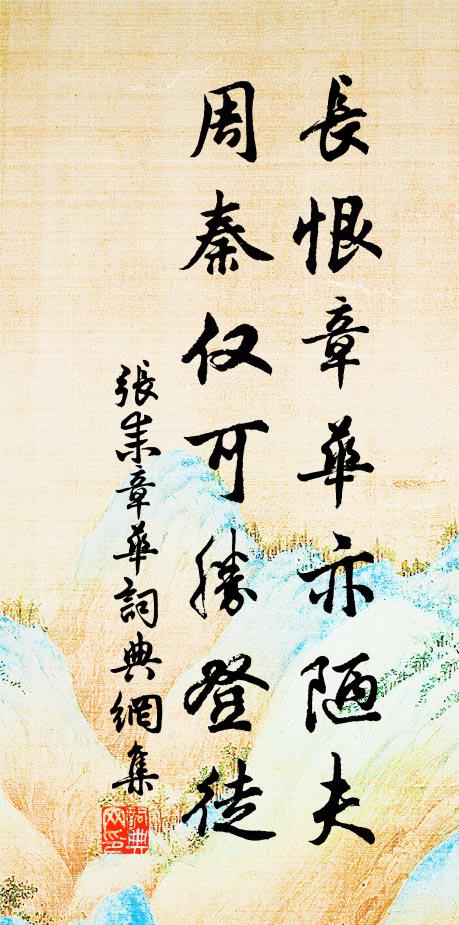 長恨章華亦陋夫
周秦仅可勝登徒
張耒章華詞典網集
詞典网印